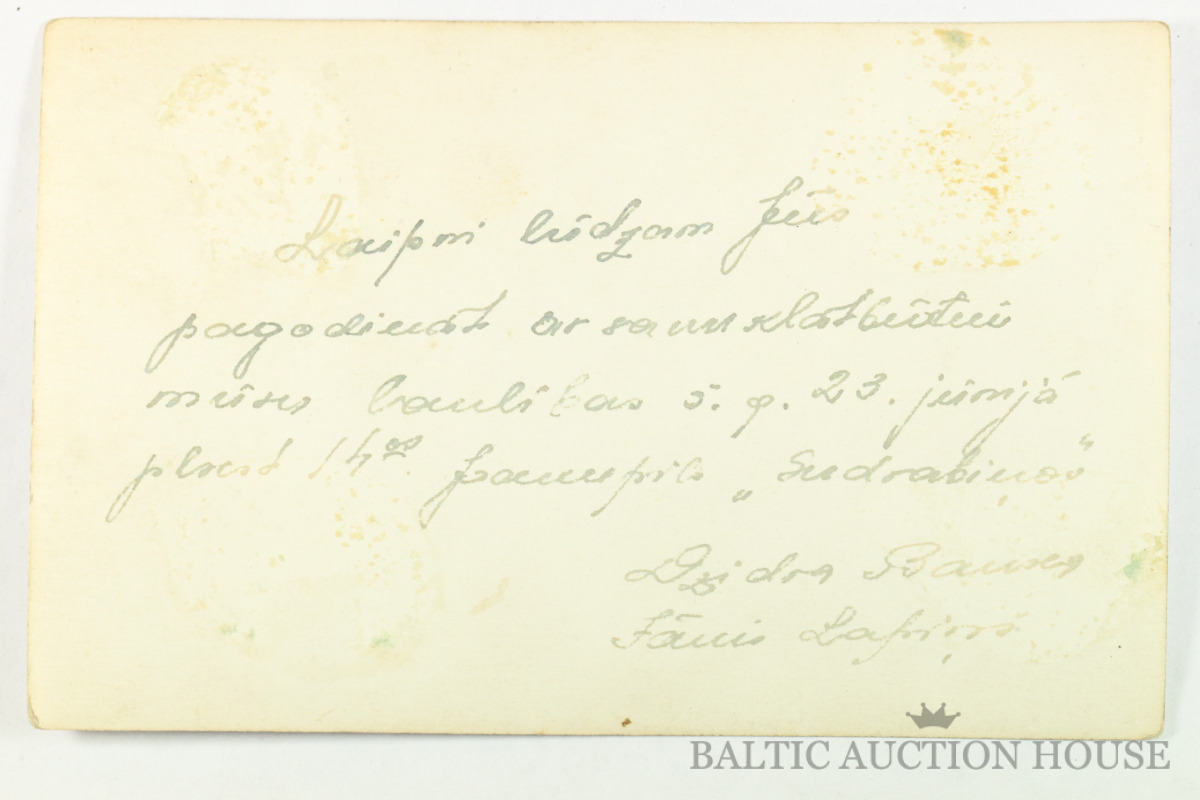 Laipni lūdzam Jūs
pagodināt ar savu klātbūtni
mūsu laulības š. g. 23. jūnijā
plkst 14⁰⁰ Jaunpils „Sudrabiņos"
Dzidra
Jānis Lapiņš
BALTIC AUCTION HOUSE